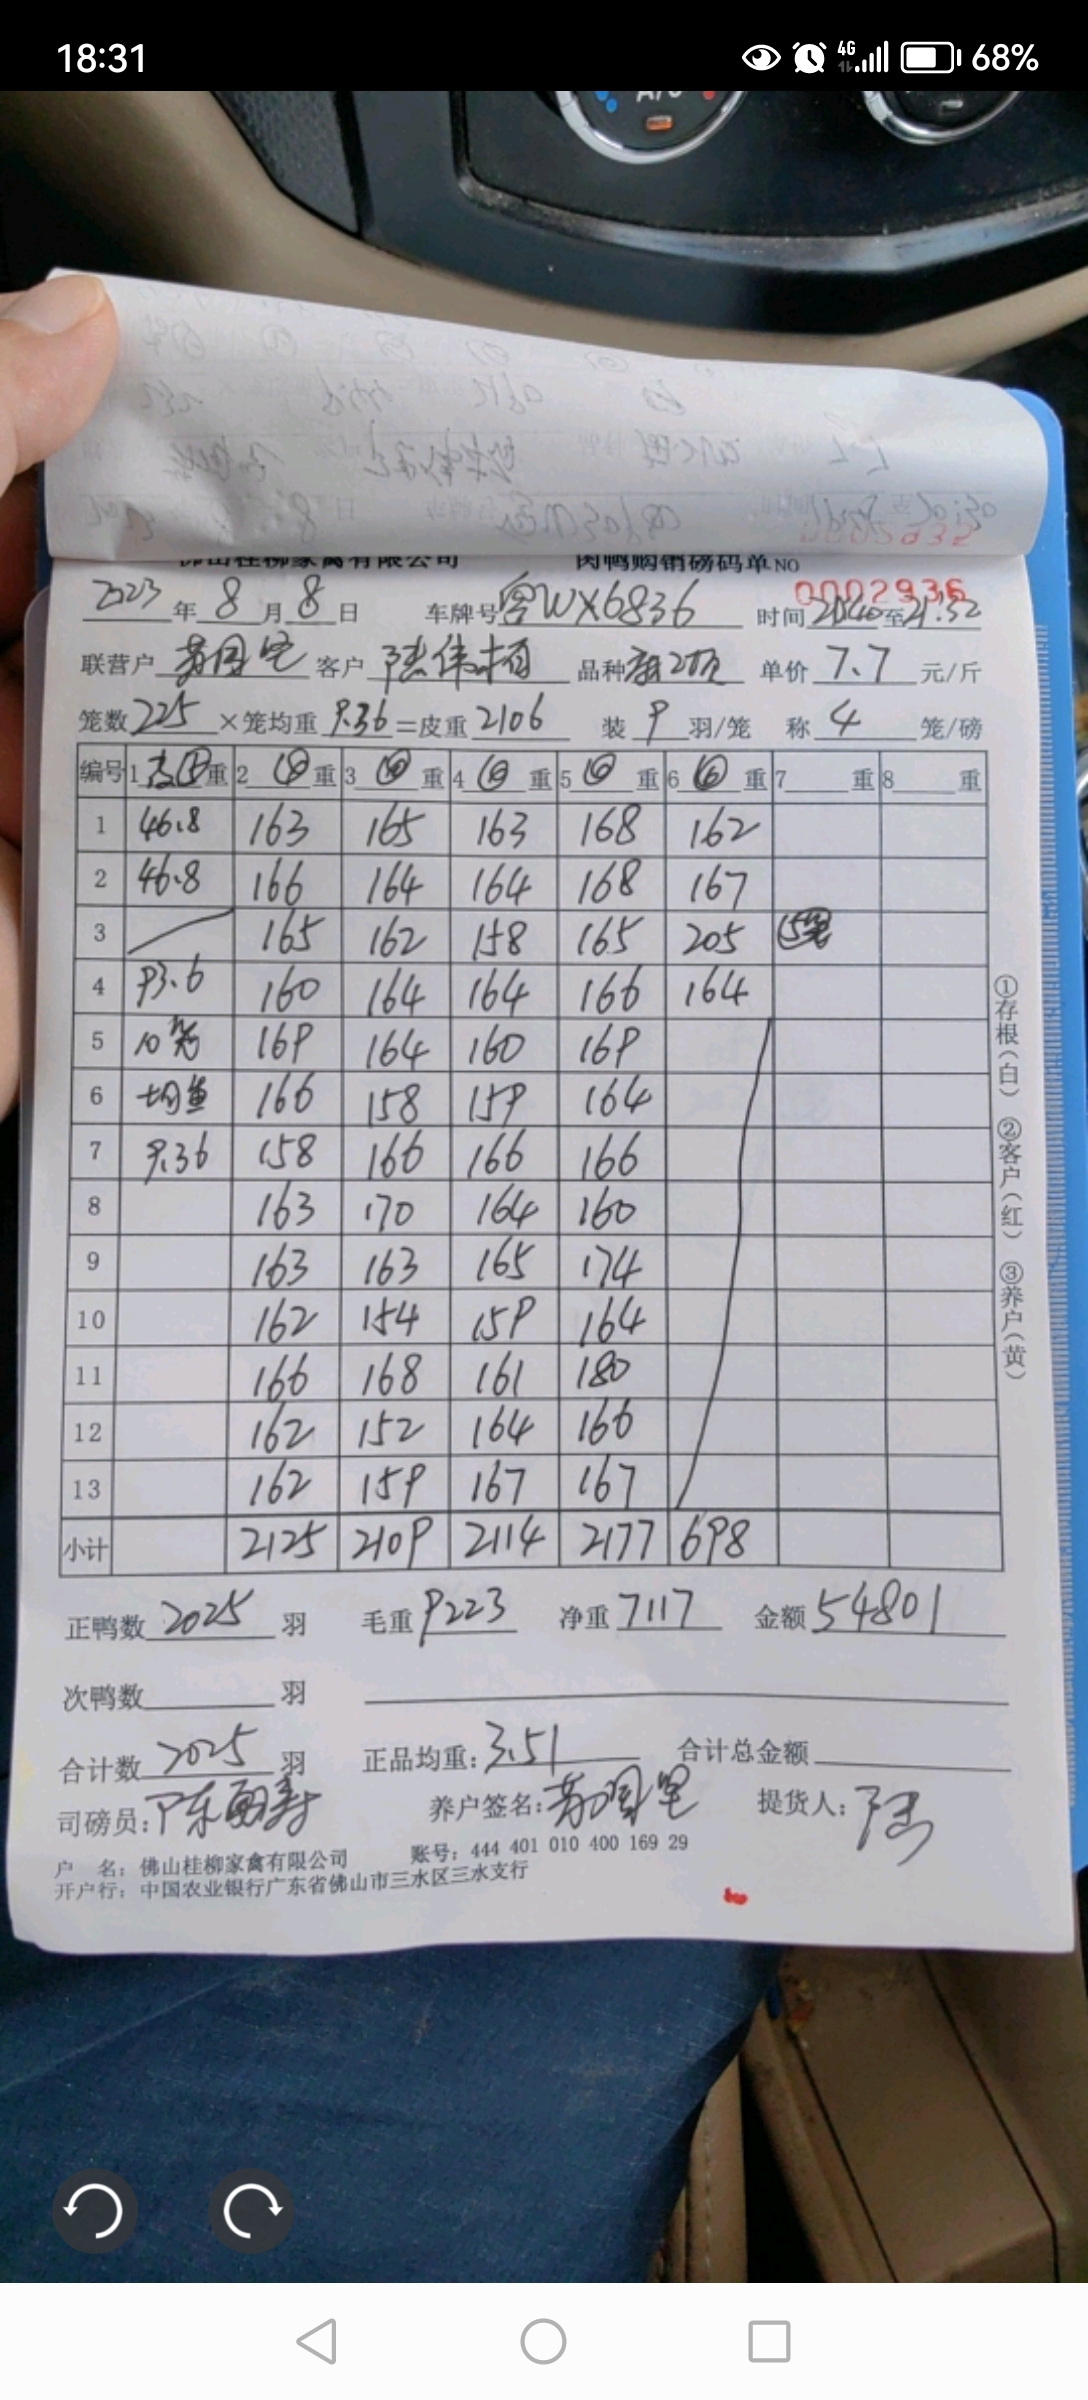 18:31 4G 68%
佛山桂柳家禽有限公司 肉鸭购销磅码单 NO 0002936
2023 年 8 月 8 日 车牌号 WX6836 时间 至 21:32
联营户 客户 陆伟 品种 单价 7.7 元/斤
笼数 225 ×笼均重 9.36 =皮重 2106 装 9 羽/笼 称 4 笼/磅
编号 1 重 2 重 3 重 4 重 5 重 6 重 7 重 8 重
1 46.8 163 165 163 168 162
2 46.8 166 164 164 168 167
3 165 162 158 165 205
4 93.6 160 164 164 166 164
5 10笼 169 164 160 169
6 均重 166 158 159 164
7 9.36 158 166 166 166
8 163 170 164 160
9 163 163 165 174
10 162 154 159 164
11 166 168 161 180
12 162 152 164 166
13 162 159 167 167
小计 2125 2109 2114 2177 698
正鸭数 2025 羽 毛重 9223 净重 7117 金额 54801
次鸭数 羽
合计数 2025 羽 正品均重: 3.51 合计总金额
司磅员: 养户签名: 提货人: 陆
户 名: 佛山桂柳家禽有限公司 账号: 444 401 010 400 169 29
开户行: 中国农业银行广东省佛山市三水区三水支行
①存根(白) ②客户(红) ③养户(黄)